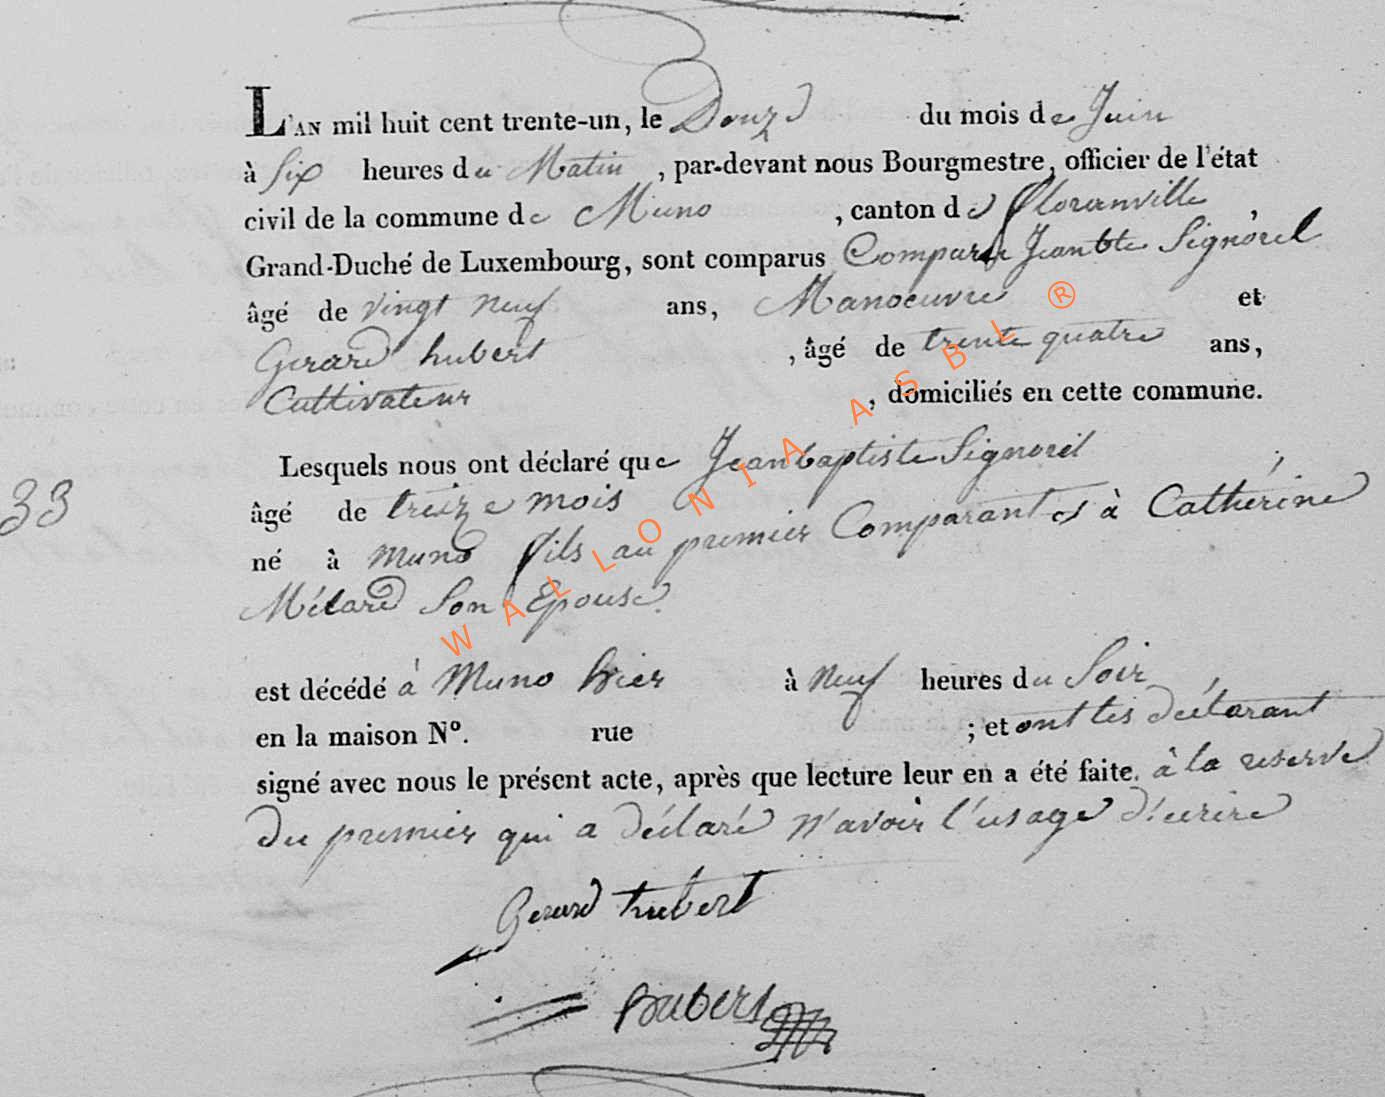 L'AN mil huit cent trente-un, le Douze du mois de Juin
à Six heures du Matin, par-devant nous Bourgmestre, officier de l'état
civil de la commune de Muno, canton de florenville,
Grand-Duché de Luxembourg, sont comparus Comparu Jean Bte Signorel
âgé de vingt neuf ans, Manoeuvre et
Gerard hubert, âgé de trente quatre ans,
Cultivateur, domiciliés en cette commune.
Lesquels nous ont déclaré que Jean baptiste Signorel
33
âgé de treize mois
né à muno fils au premier Comparant et à Catherine
Mélard Son Epouse.
est décédé à Muno hier à Neuf heures du Soir
en la maison N°. rue ; et ont les déclarant
signé avec nous le présent acte, après que lecture leur en a été faite. à la reserve
du premier qui a déclaré n'avoir l'usage d'écrire
Gerard hubert
Hubert
WALLONIA ASBL ®